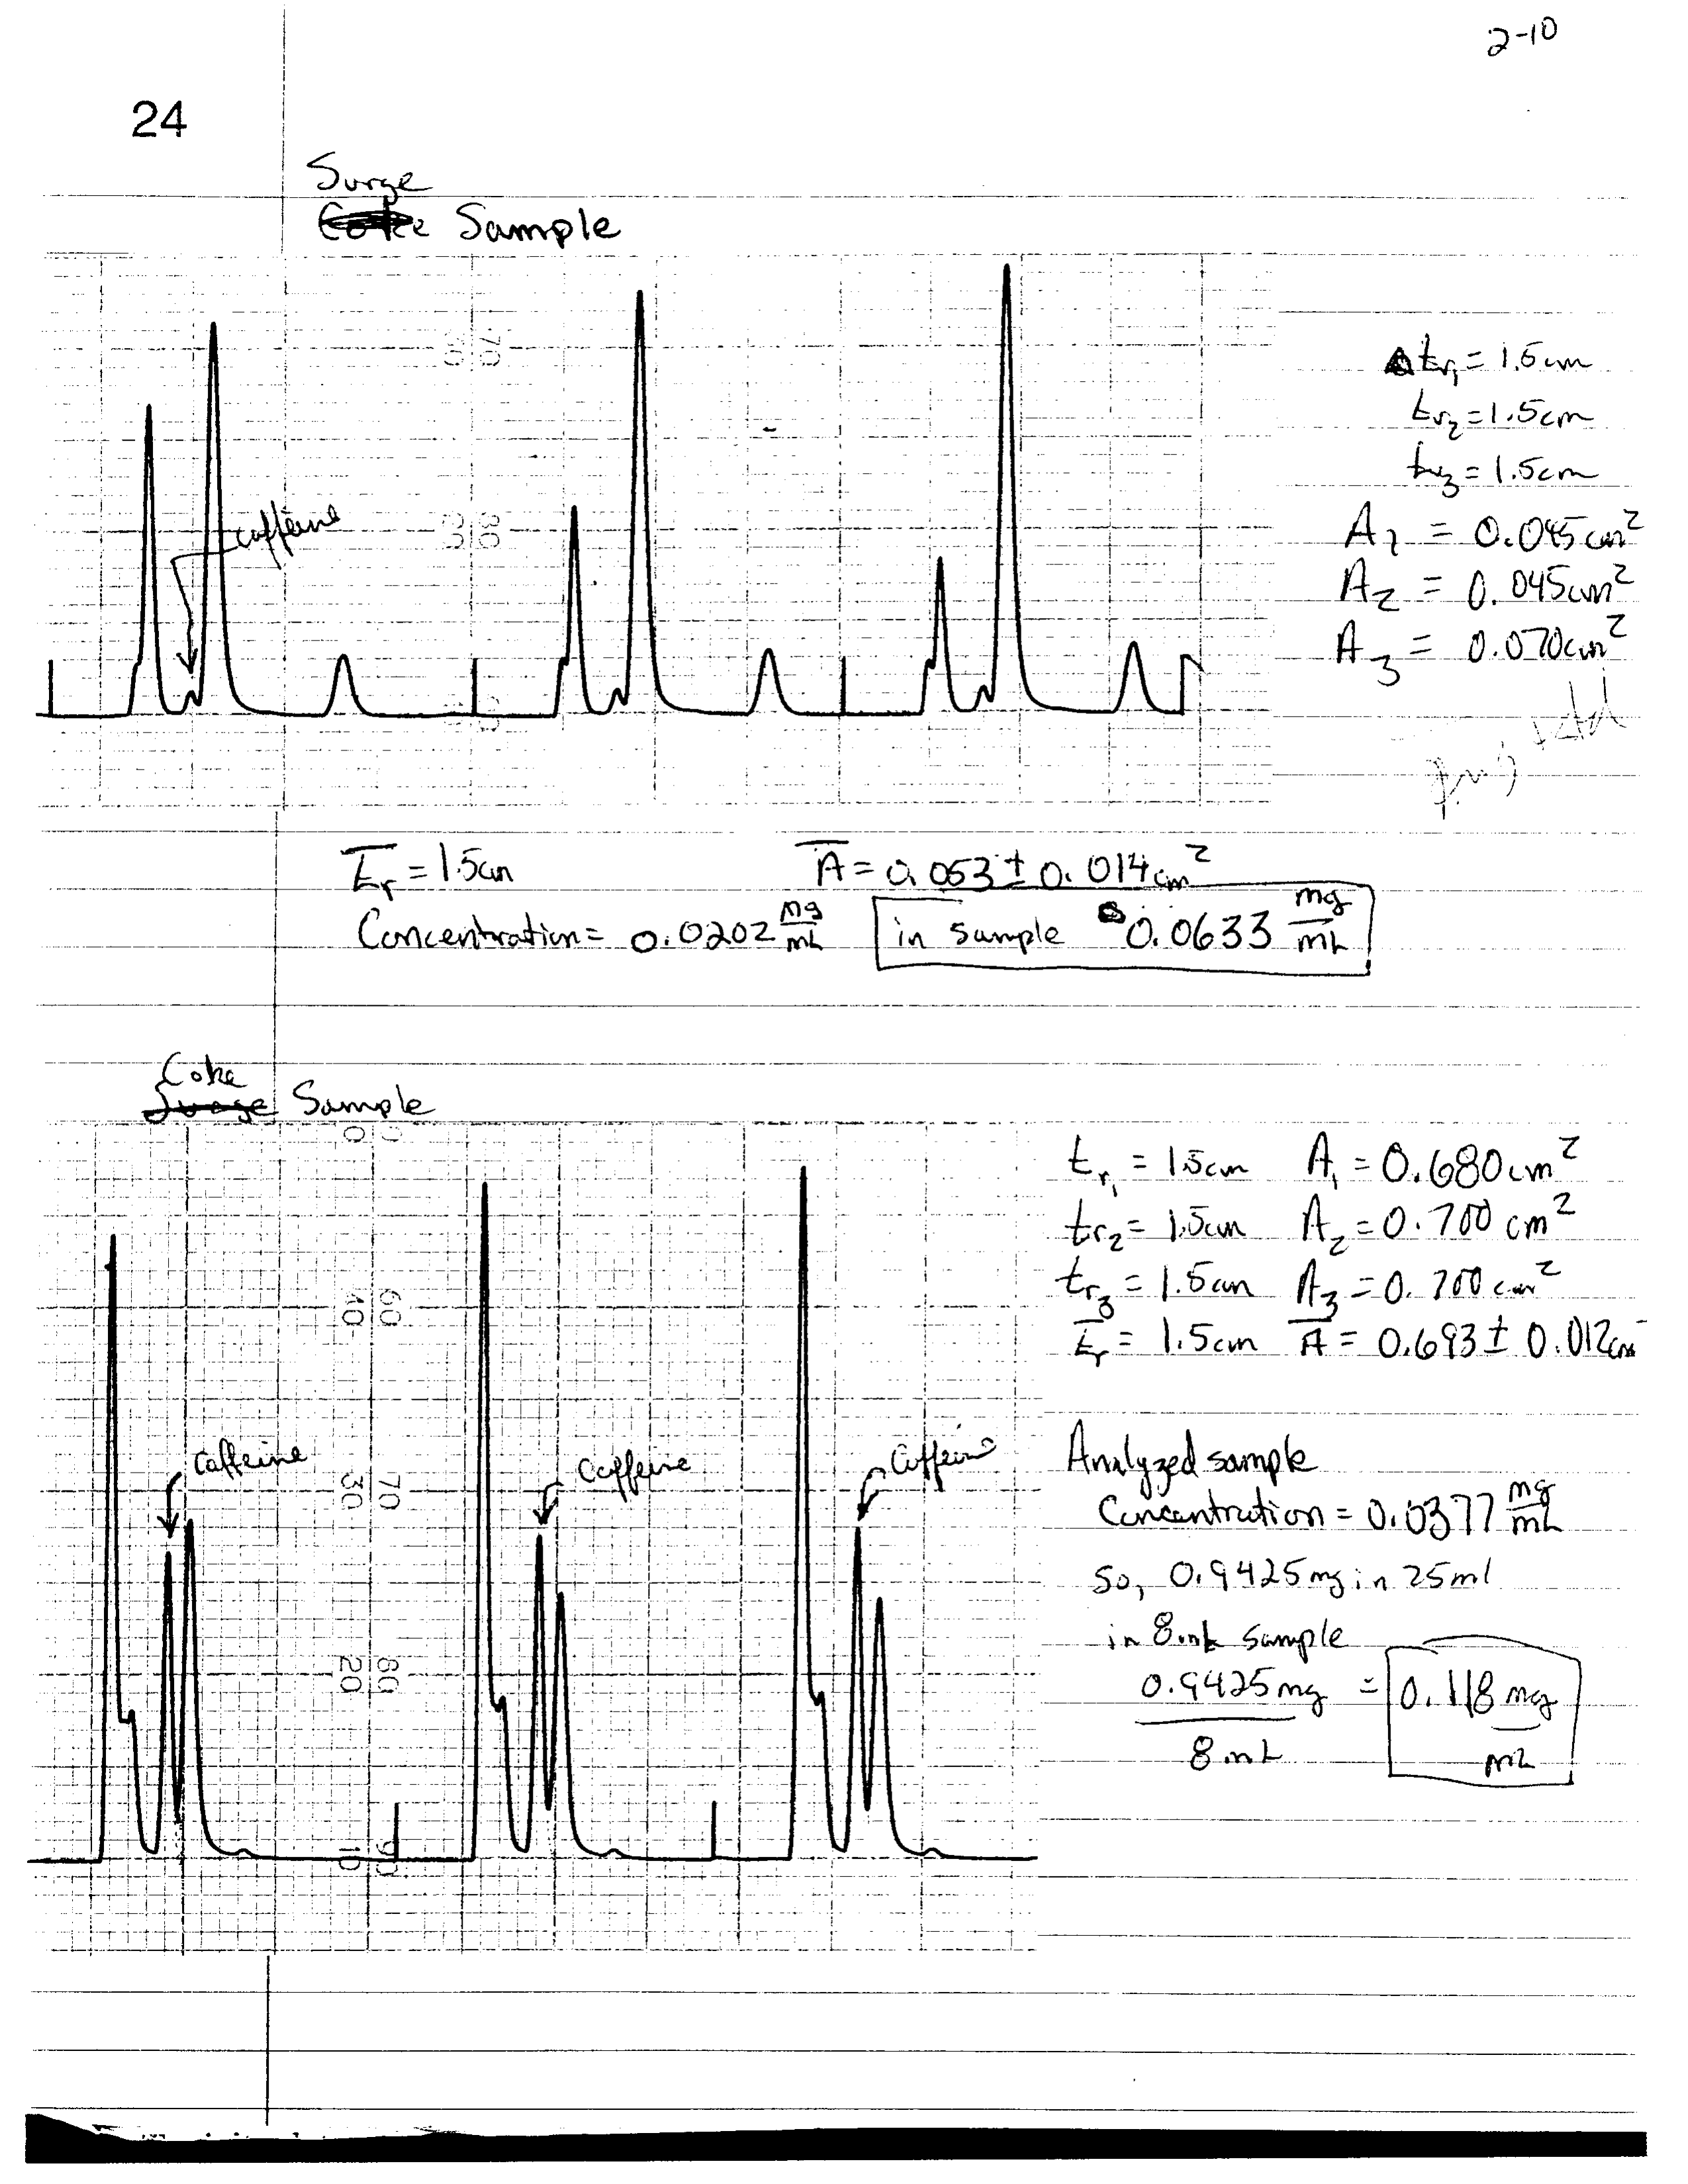 2-10
24
Surge
Coke Sample
70
30
80
20
90
10
caffeine
tr1 = 1.5cm
tr2 = 1.5cm
tr3 = 1.5cm
A1 = 0.045cm²
A2 = 0.045cm²
A3 = 0.070cm²
t̄r = 1.5cm
Ā = 0.053 ± 0.014cm²
Concentration = 0.0202 mg/mL
in sample 0.0633 mg/mL
Coke
Surge Sample
60
40
70
30
80
20
90
10
caffeine
caffeine
caffeine
tr1 = 1.5cm A1 = 0.680cm²
tr2 = 1.5cm A2 = 0.700 cm²
tr3 = 1.5cm A3 = 0.700 cm²
t̄r = 1.5cm Ā = 0.693 ± 0.012cm
Analyzed sample
Concentration = 0.0377 mg/mL
so, 0.9425mg in 25ml
in 8mL sample
0.9425mg / 8 mL = 0.118 mg/mL